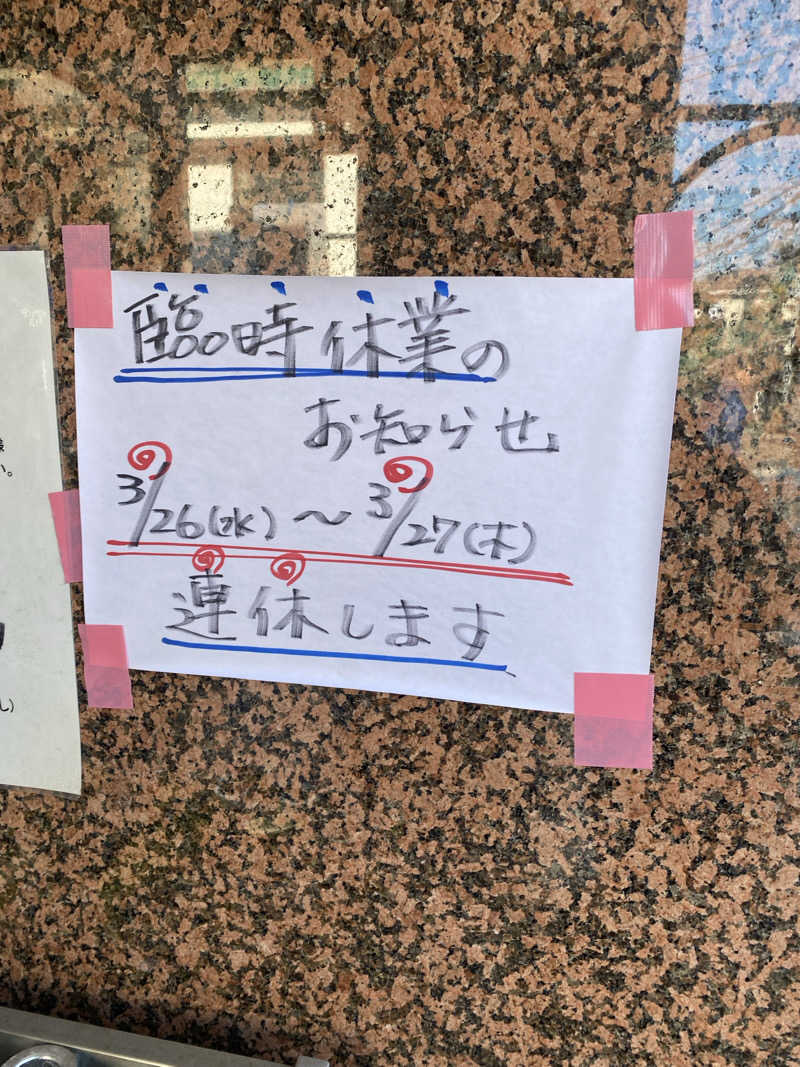 臨時休業の
お知らせ
3/26(水)～3/27(木)
連休します
様
い。
し)